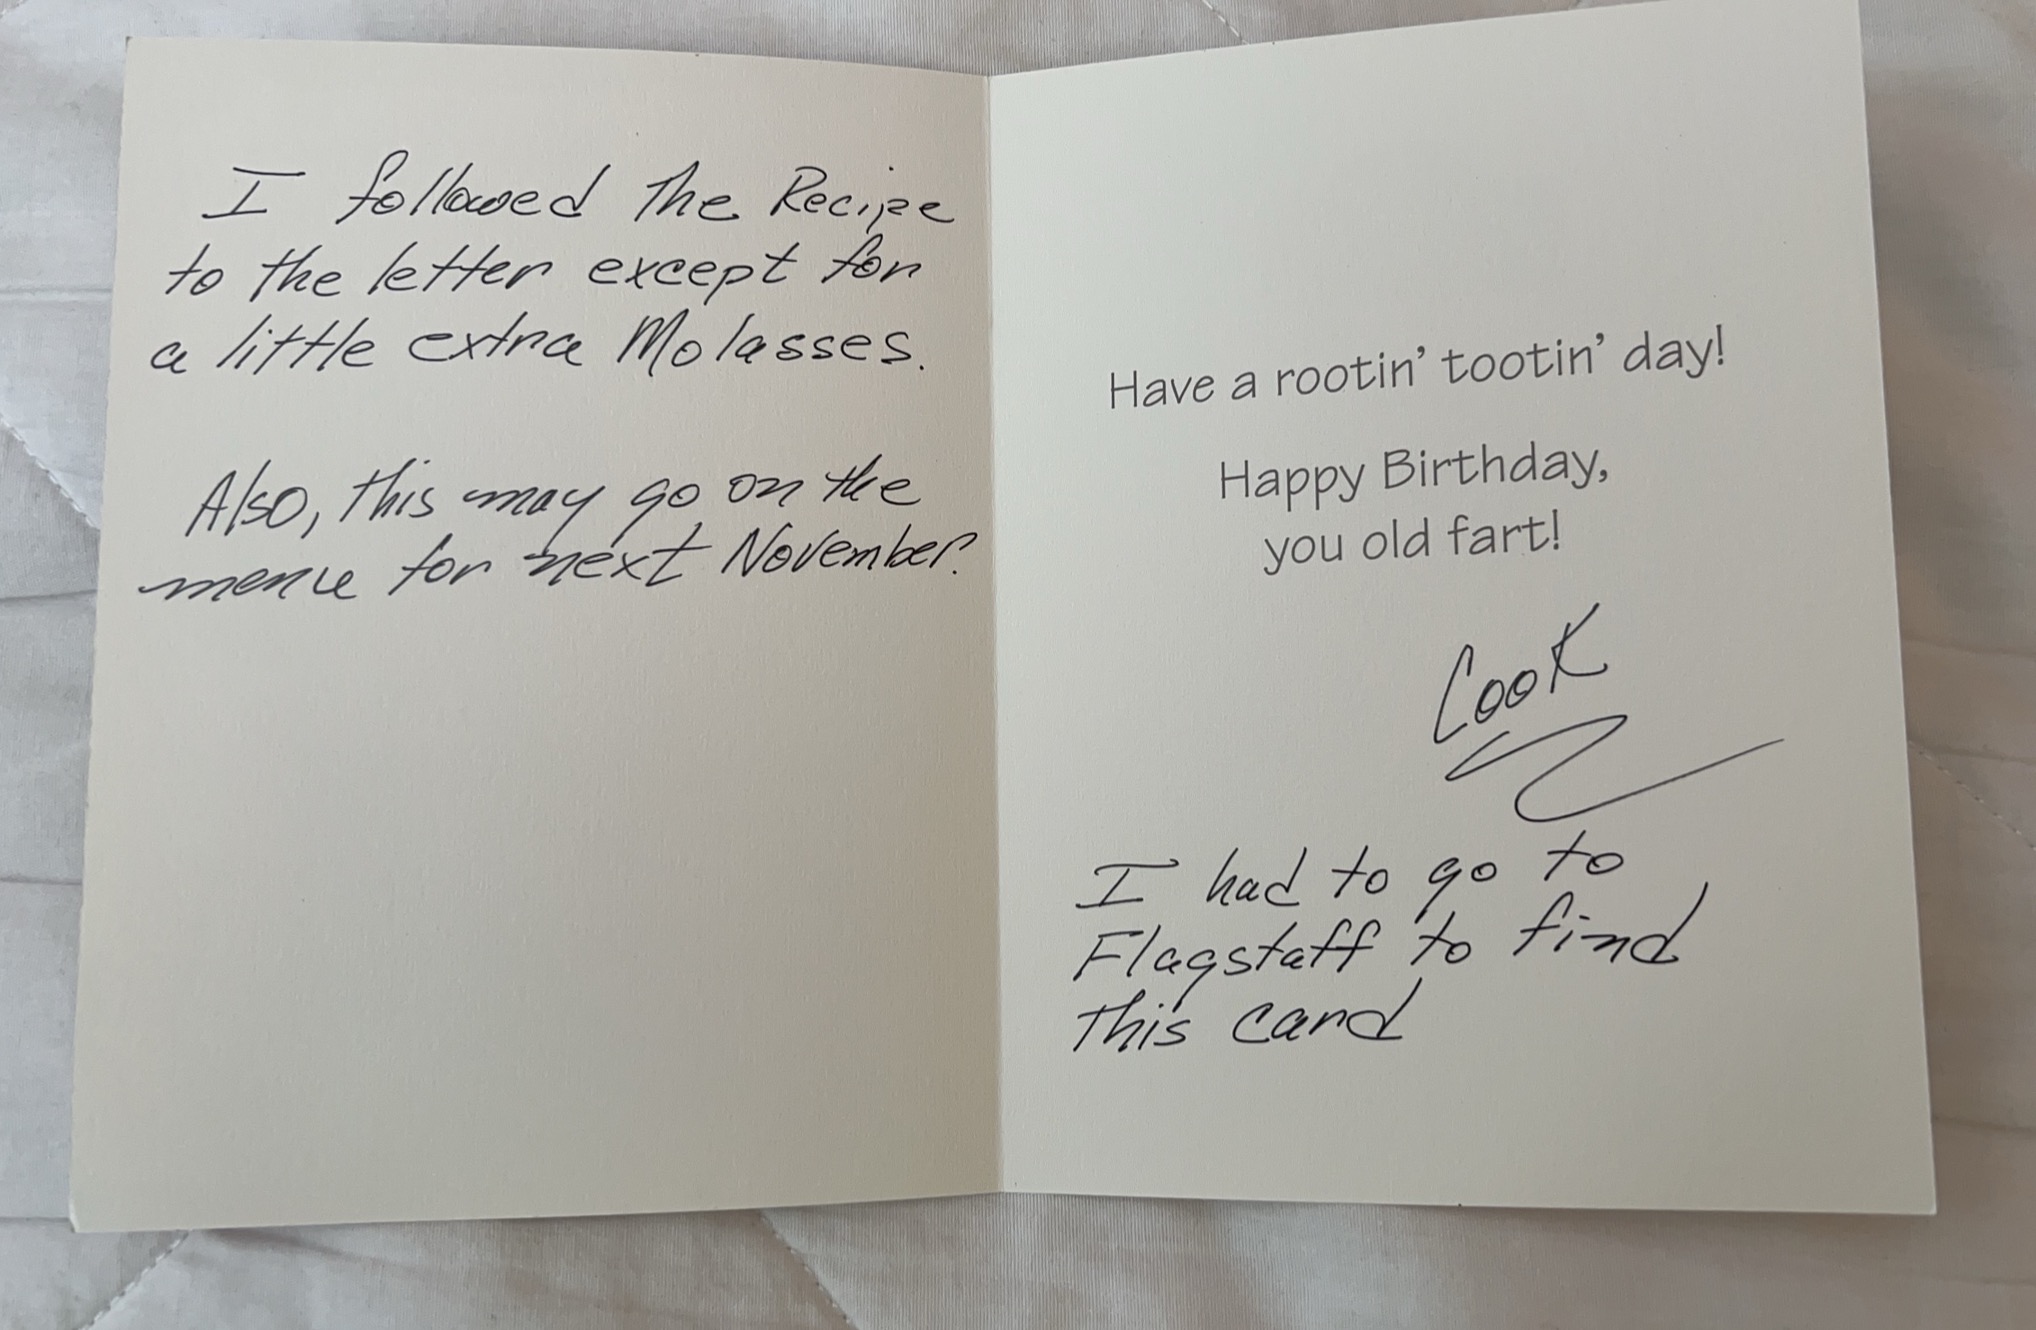 I followed the Recipe
to the letter except for
a little extra Molasses.
Also, this may go on the
menu for next November.
Have a rootin' tootin' day!
Happy Birthday,
you old fart!
Cook
I had to go to
Flagstaff to find
this card